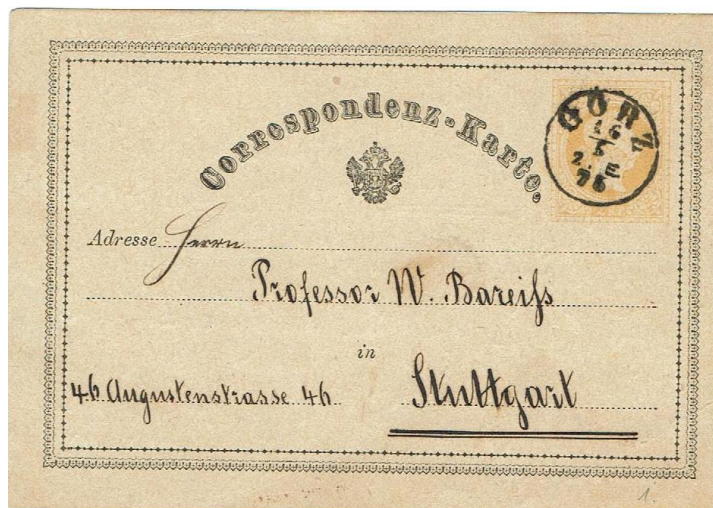 Correspondenz-Karte.
GÖRZ
16
5
2. E
76
Adresse Herrn
Professor W. Bareiss
in
46 Augustenstrasse 46. Stuttgart
1.